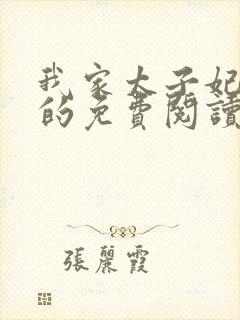 我家太子妃
的免費閱讀
張麗霞